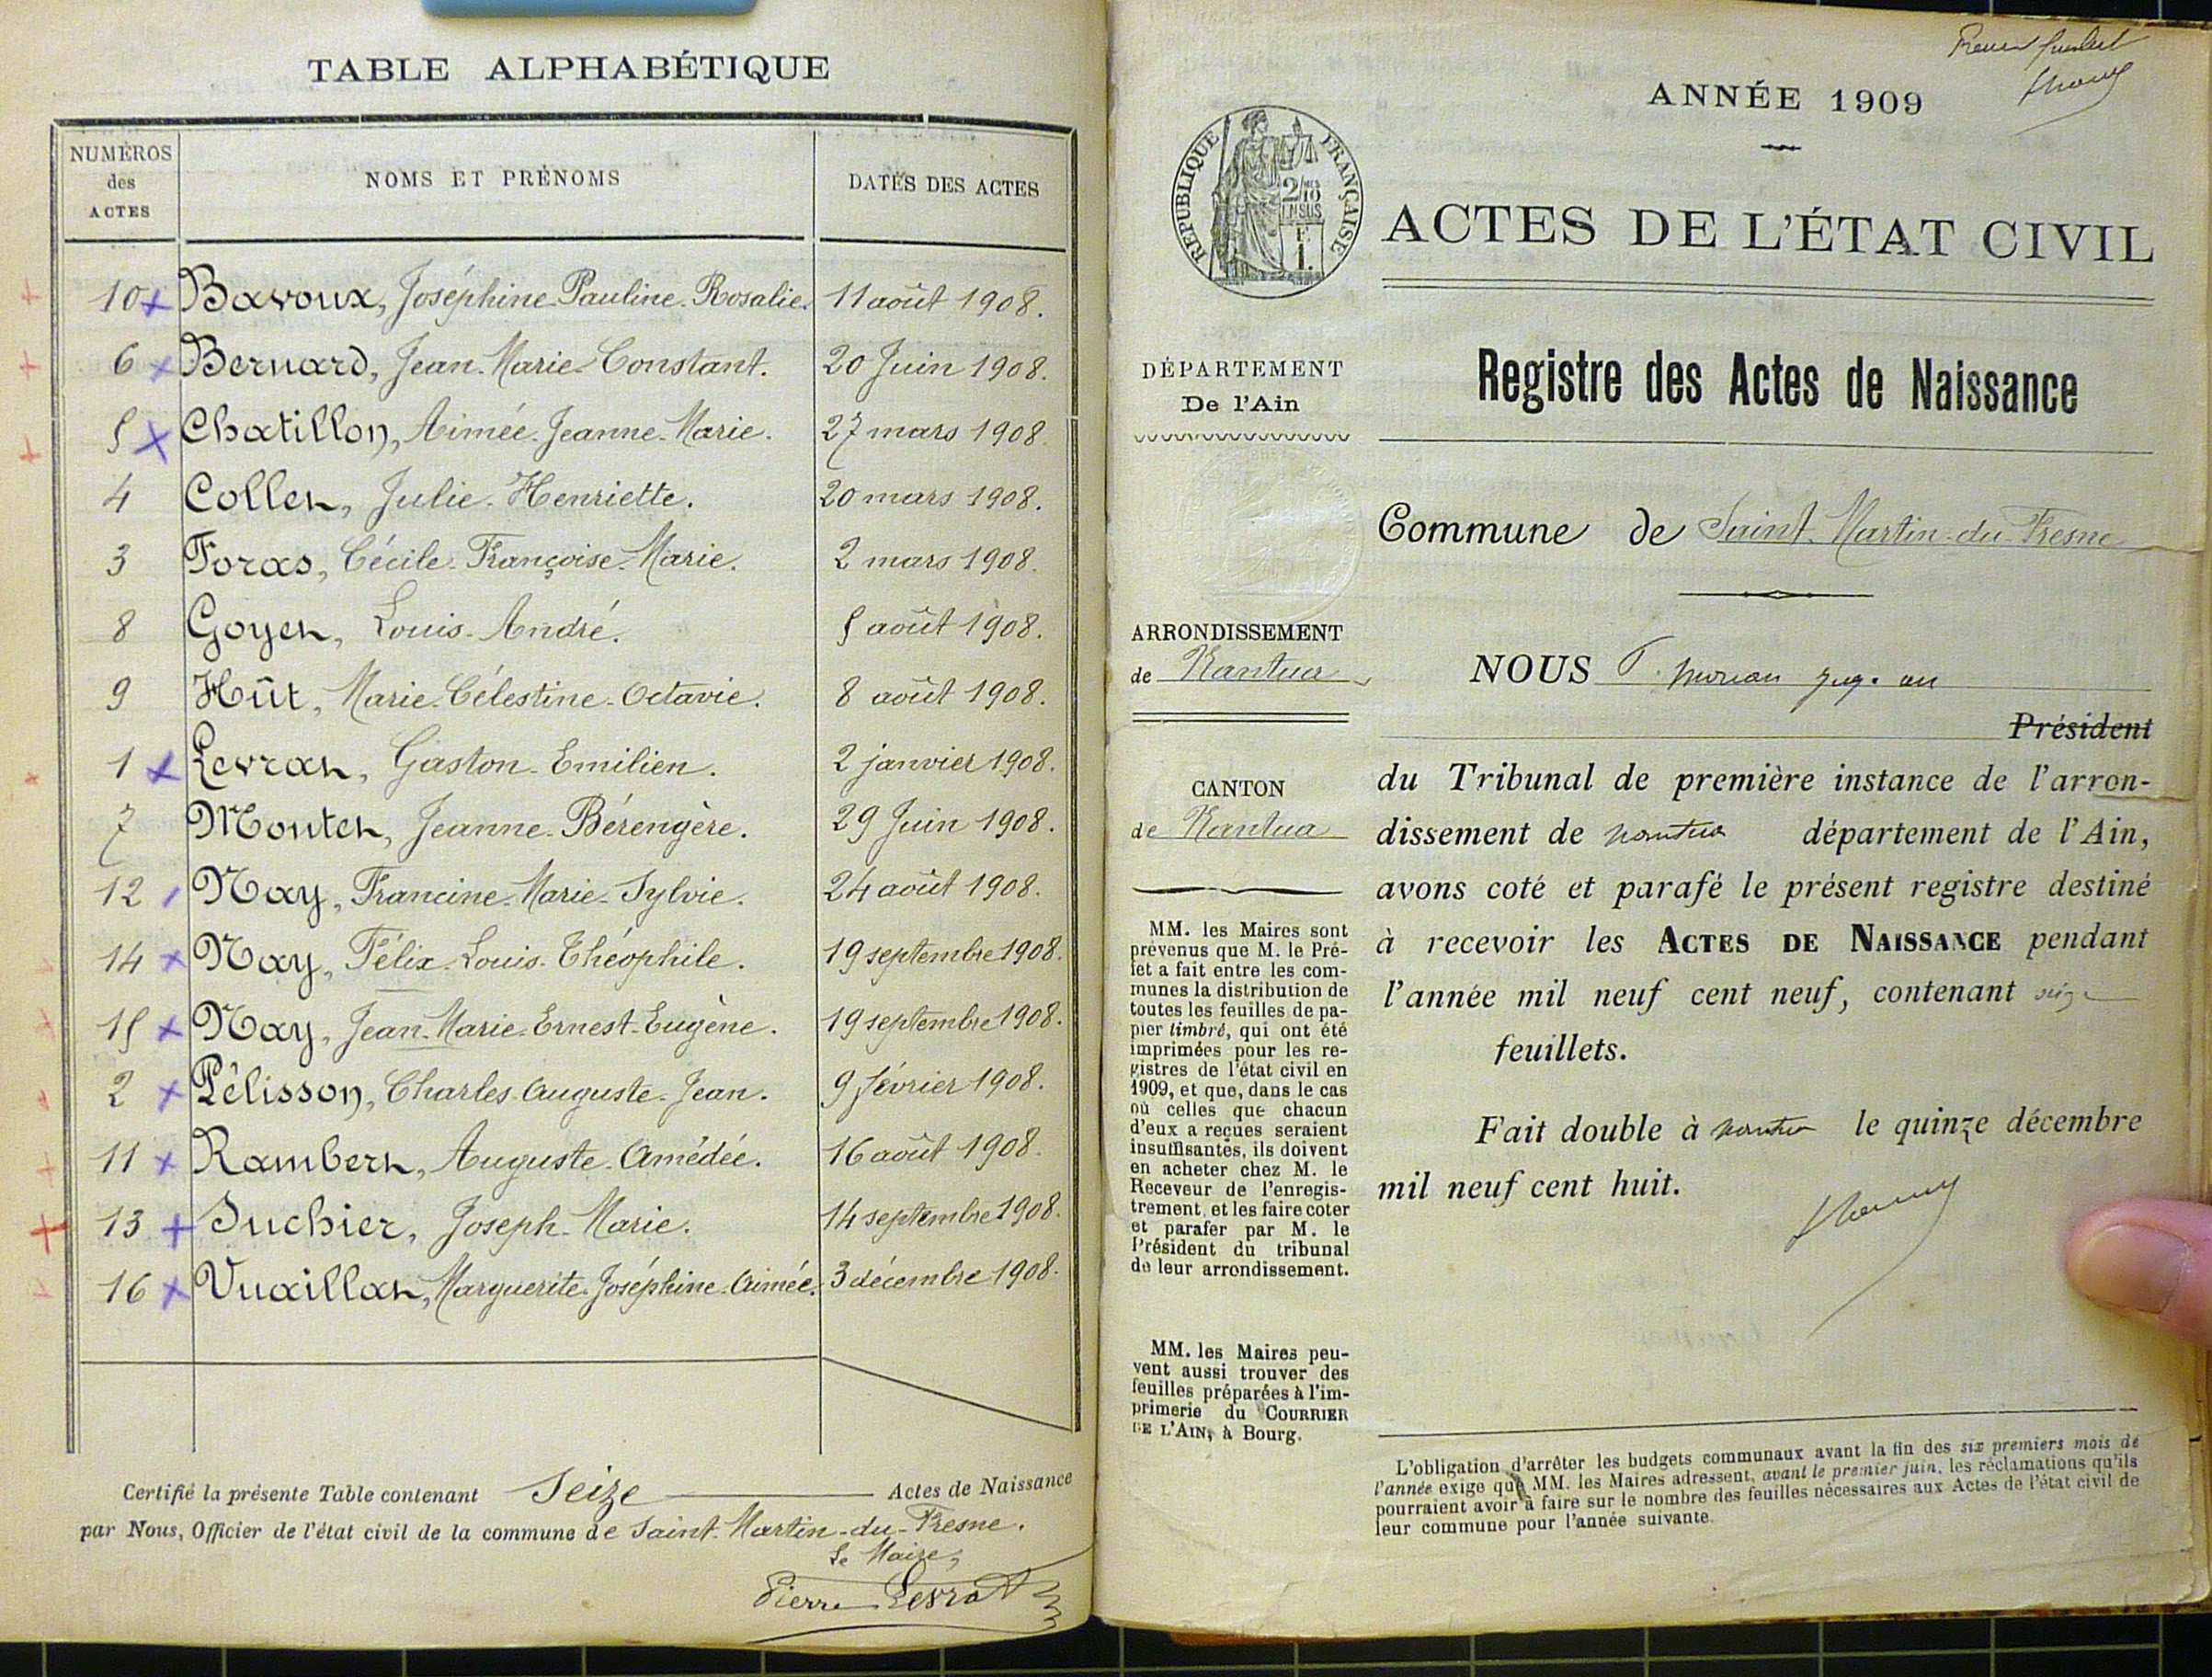 TABLE ALPHABÉTIQUE
NUMÉROS
des
ACTES
NOMS ET PRÉNOMS
DATES DES ACTES
10 Bavoux, Joséphine-Pauline-Rosalie. 11 août 1908.
6 Bernard, Jean-Marie-Constant. 20 Juin 1908.
5 Chatillon, Aimée-Jeanne-Marie. 27 mars 1908.
4 Collet, Julie-Henriette. 20 mars 1908.
3 Foras, Cécile-Françoise-Marie. 2 mars 1908.
8 Goyet, Louis-André. 5 août 1908.
9 Hût, Marie-Célestine-Octavie. 8 août 1908.
1 Levrat, Gaston-Emilien. 2 janvier 1908.
7 Montet, Jeanne-Bérengère. 29 Juin 1908.
12 Nay, Francine-Marie-Sylvie. 24 août 1908.
14 Nay, Félix-Louis-Théophile. 19 septembre 1908.
15 Nay, Jean-Marie-Ernest-Eugène. 19 septembre 1908.
2 Pélisson, Charles-Auguste-Jean. 9 février 1908.
11 Rambert, Auguste-Amédée. 16 août 1908.
13 Suchier, Joseph-Marie. 14 septembre 1908.
16 Vuaillat, Marguerite-Joséphine-Aimée. 3 décembre 1908.
Certifié la présente Table contenant Seize Actes de Naissance
par Nous, Officier de l'état civil de la commune de Saint-Martin-du-Fresne.
Le Maire,
Pierre Levrat
ANNÉE 1909
RÉPUBLIQUE FRANÇAISE
2/10
EN SUS
1 F.
ACTES DE L'ÉTAT CIVIL
DÉPARTEMENT
De l'Ain
Registre des Actes de Naissance
Commune de Saint-Martin-du-Fresne
ARRONDISSEMENT
de Nantua
CANTON
de Nantua
MM. les Maires sont
prévenus que M. le Pré-
fet a fait entre les com-
munes la distribution de
toutes les feuilles de pa-
pier timbré, qui ont été
imprimées pour les re-
gistres de l'état civil en
1909, et que, dans le cas
où celles que chacun
d'eux a reçues seraient
insuffisantes, ils doivent
en acheter chez M. le
Receveur de l'enregis-
trement, et les faire coter
et parafer par M. le
Président du tribunal
de leur arrondissement.
MM. les Maires peu-
vent aussi trouver des
feuilles préparées à l'im-
primerie du COURRIER
DE L'AIN, à Bourg.
NOUS
Président
du Tribunal de première instance de l'arron-
dissement de Nantua département de l'Ain,
avons coté et parafé le présent registre destiné
à recevoir les ACTES DE NAISSANCE pendant
l'année mil neuf cent neuf, contenant
feuillets.
Fait double à Nantua le quinze décembre
mil neuf cent huit.
L'obligation d'arrêter les budgets communaux avant la fin des six premiers mois de
l'année exige que MM. les Maires adressent, avant le premier juin, les réclamations qu'ils
pourraient avoir à faire sur le nombre des feuilles nécessaires aux Actes de l'état civil de
leur commune pour l'année suivante.